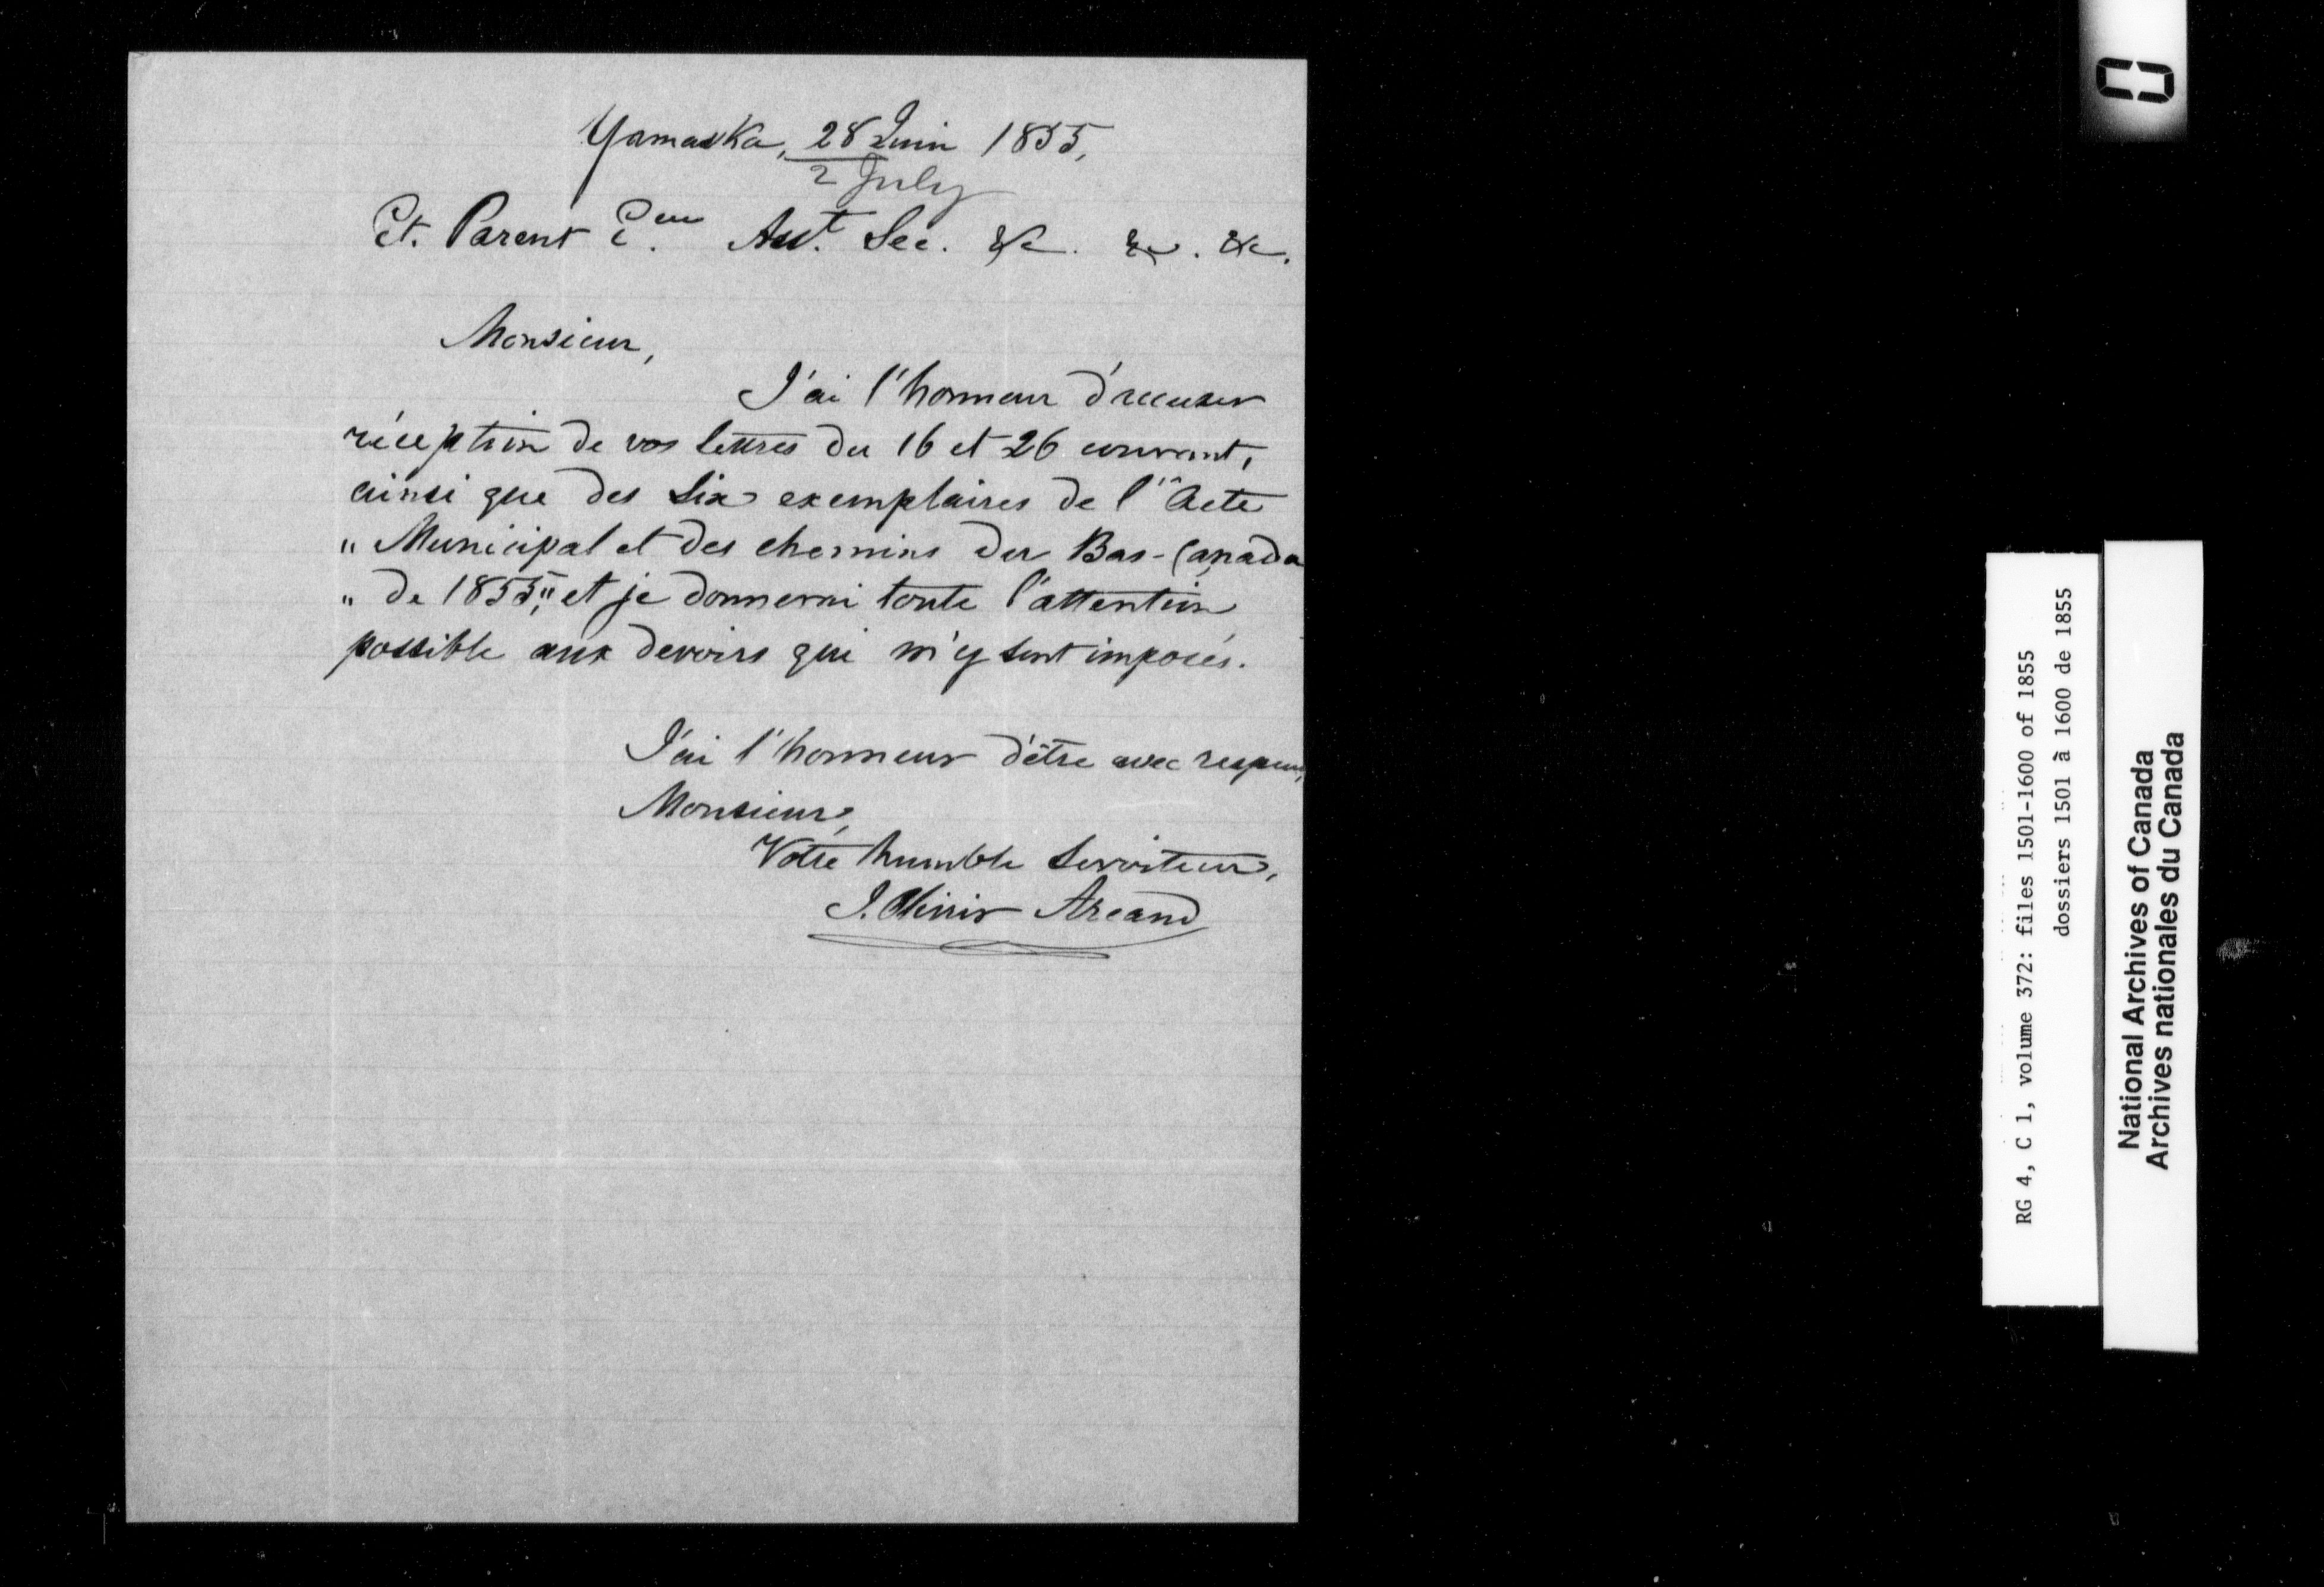 Yamaska, 28 Juin 1855,
2 July
Et. Parent E.eur Asst. Sec. &c. &c. &c.
Monsieur,
J'ai l'honneur d'accuser
réception de vos lettres du 16 et 26 courant,
ainsi que des six exemplaires de l'"Acte
" Municipal et des chemins du Bas-Canada
" de 1855," et je donnerai toute l'attention
possible aux devoirs qui m'y sont imposés.
J'ai l'honneur d'être avec respect,
Monsieur,
Votre humble Serviteur,
J. Olivier Arcand
RG 4, C 1, volume 372: files 1501-1600 of 1855
dossiers 1501 à 1600 de 1855
National Archives of Canada
Archives nationales du Canada